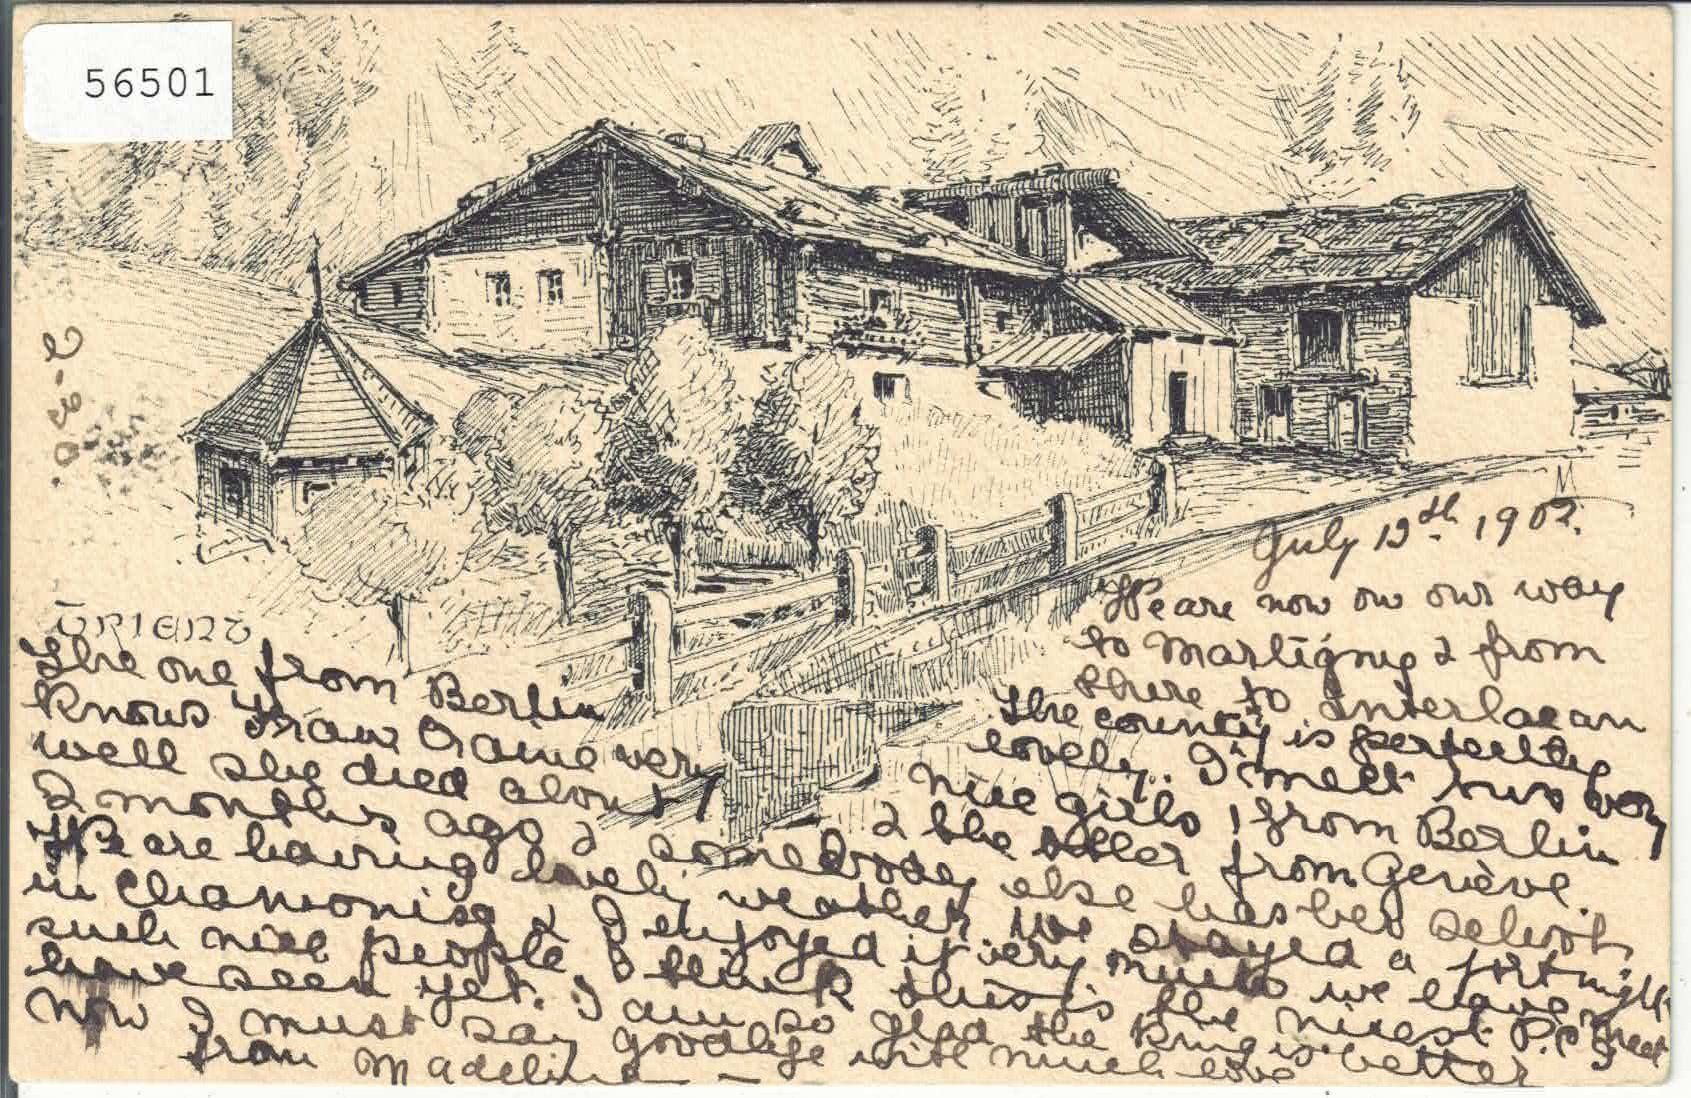 56501
2-30.
M
TRIENT
July 12th. 1902.
We are now on our way
to Martigny & from
there to Interlacan
the county is perfectly
lovely. I meet two very
nice girls, 1 from Berlin
& the other from Genève.
The one from Berlin
knows Fraw very
well she died about
2 months ago & somebody else has ben
We are having lovely weather we stayed a fortnight
in Chamonise & I enjoyed it very much we have meet
such nice people, I think this is the nicest P.c I
have seen yet. I am so glad the King is better
Now I must say goodbye with much love
from Madelina —